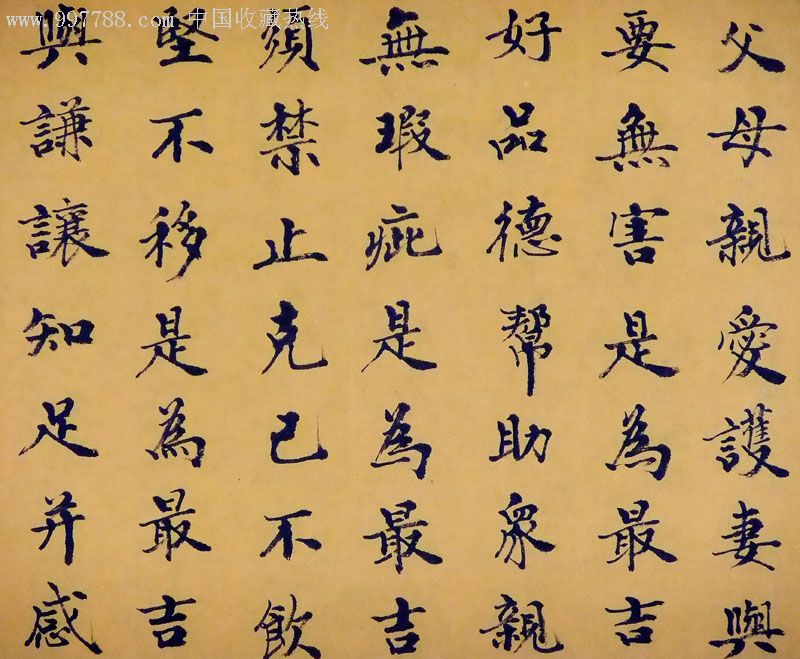 www.997788.com 中国收藏热线
父母親愛護妻與
要無害是為最吉
好品德幫助眾親
無瑕疵是為最吉
須禁止克己不飲
堅不移是為最吉
與謙讓知足并感